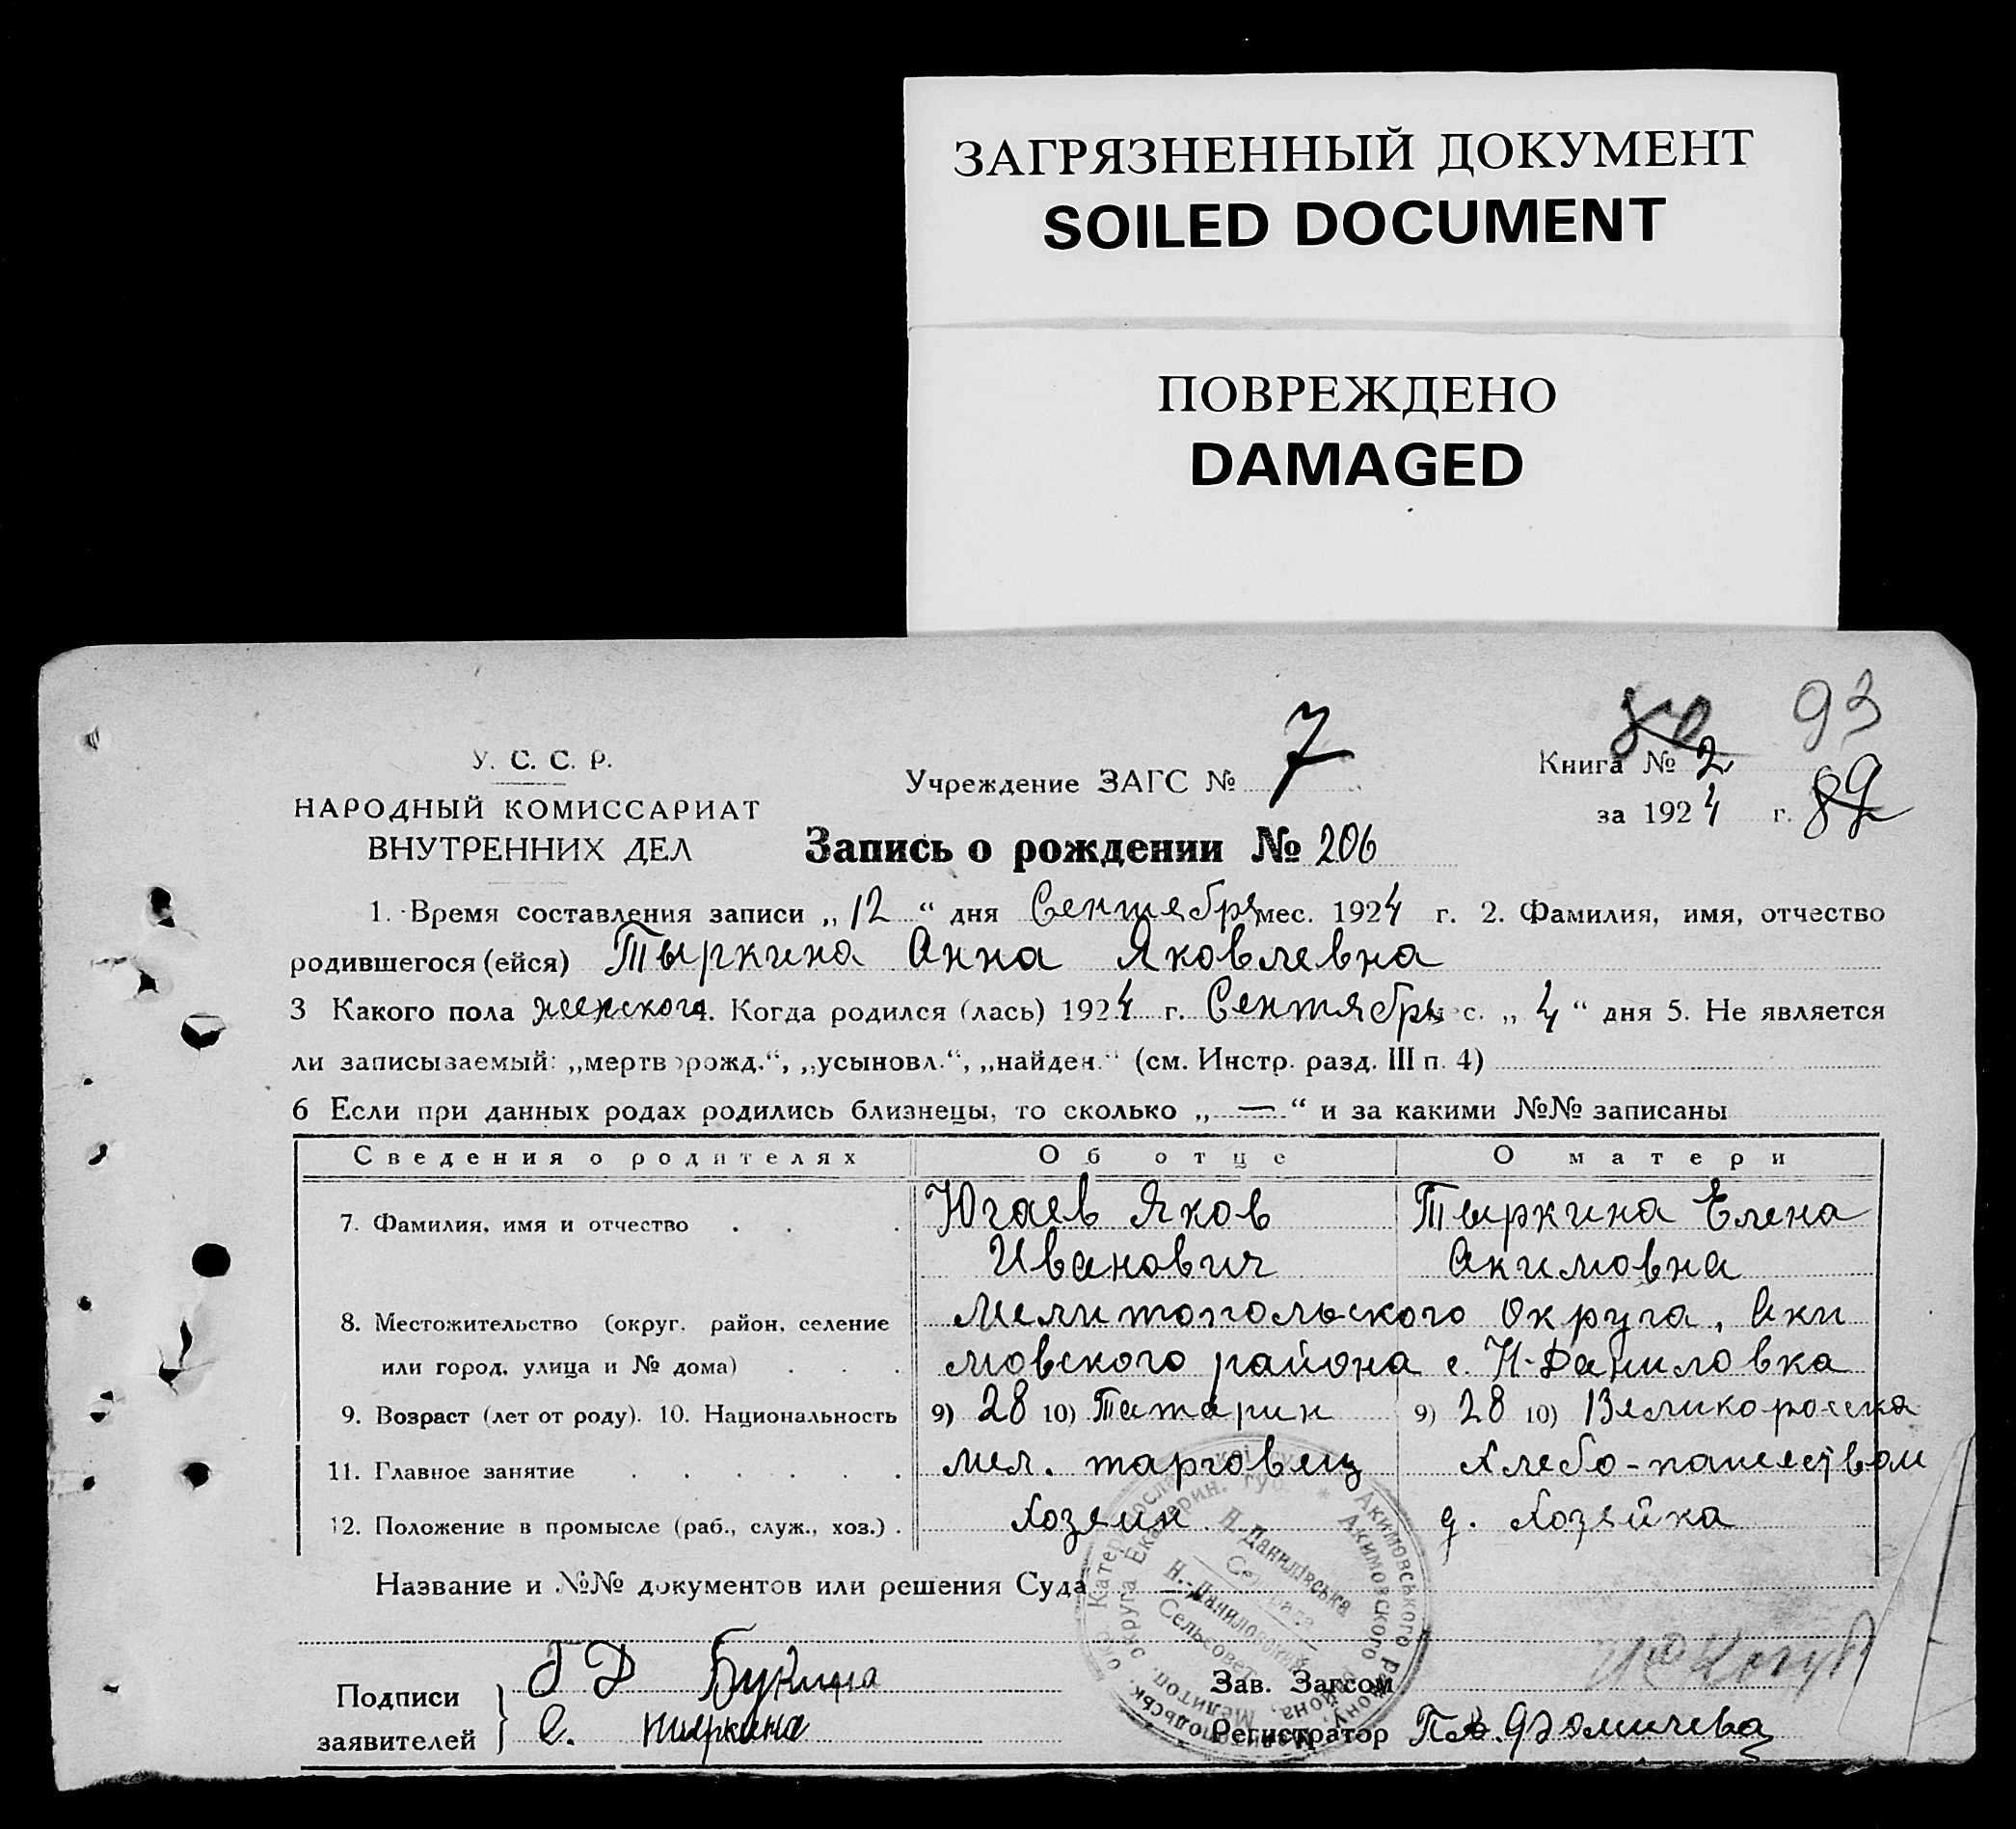 ЗАГРЯЗНЕННЫЙ ДОКУМЕНТ
SOILED DOCUMENT
ПОВРЕЖДЕНО
DAMAGED
80 93
У. С. С. Р.
НАРОДНЫЙ КОМИССАРИАТ
ВНУТРЕННИХ ДЕЛ
Учреждение ЗАГС № 7
Книга № 2
за 1924 г. 89
Запись о рождении № 206
1. Время составления записи „12“ дня Сентября мес. 1924 г. 2. Фамилия, имя, отчество
родившегося (ейся) Тыркина Анна Яковлевна
3 Какого пола женского 4. Когда родился (лась) 1924 г. Сентября мес. „4“ дня 5. Не является
ли записываемый: „мертворожд.“, „усыновл.“, „найден.“ (см. Инстр. разд. III п. 4)
6 Если при данных родах родились близнецы, то сколько „—“ и за какими №№ записаны
Сведения о родителях Об отце О матери
7. Фамилия, имя и отчество . . . Югаев Яков Тыркина Елена
Иванович Акимовна
8. Местожительство (округ, район, селение Мелитопольского Округа, Аки
или город, улица и № дома) . . . мовского района с. Н-Даниловка
9. Возраст (лет от роду). 10. Национальность 9) 28 10) Татарин 9) 28 10) Великоросска
11. Главное занятие . . . . . . мел. тарговец Хлебо-пашеством
12. Положение в промысле (раб., служ., хоз.) . Хозяин д. Хозяйка
Название и №№ документов или решения Суда
Акимовського району
Акимовского района,
Н.-Данилівська
Н.-Даниловский
Сельсовет
Мелитоп. округа Екатерин. губ.
Подписи
заявителей
Г Д Букина
Е. тыркина
Зав. Загсом
Регистратор П. Фомичева